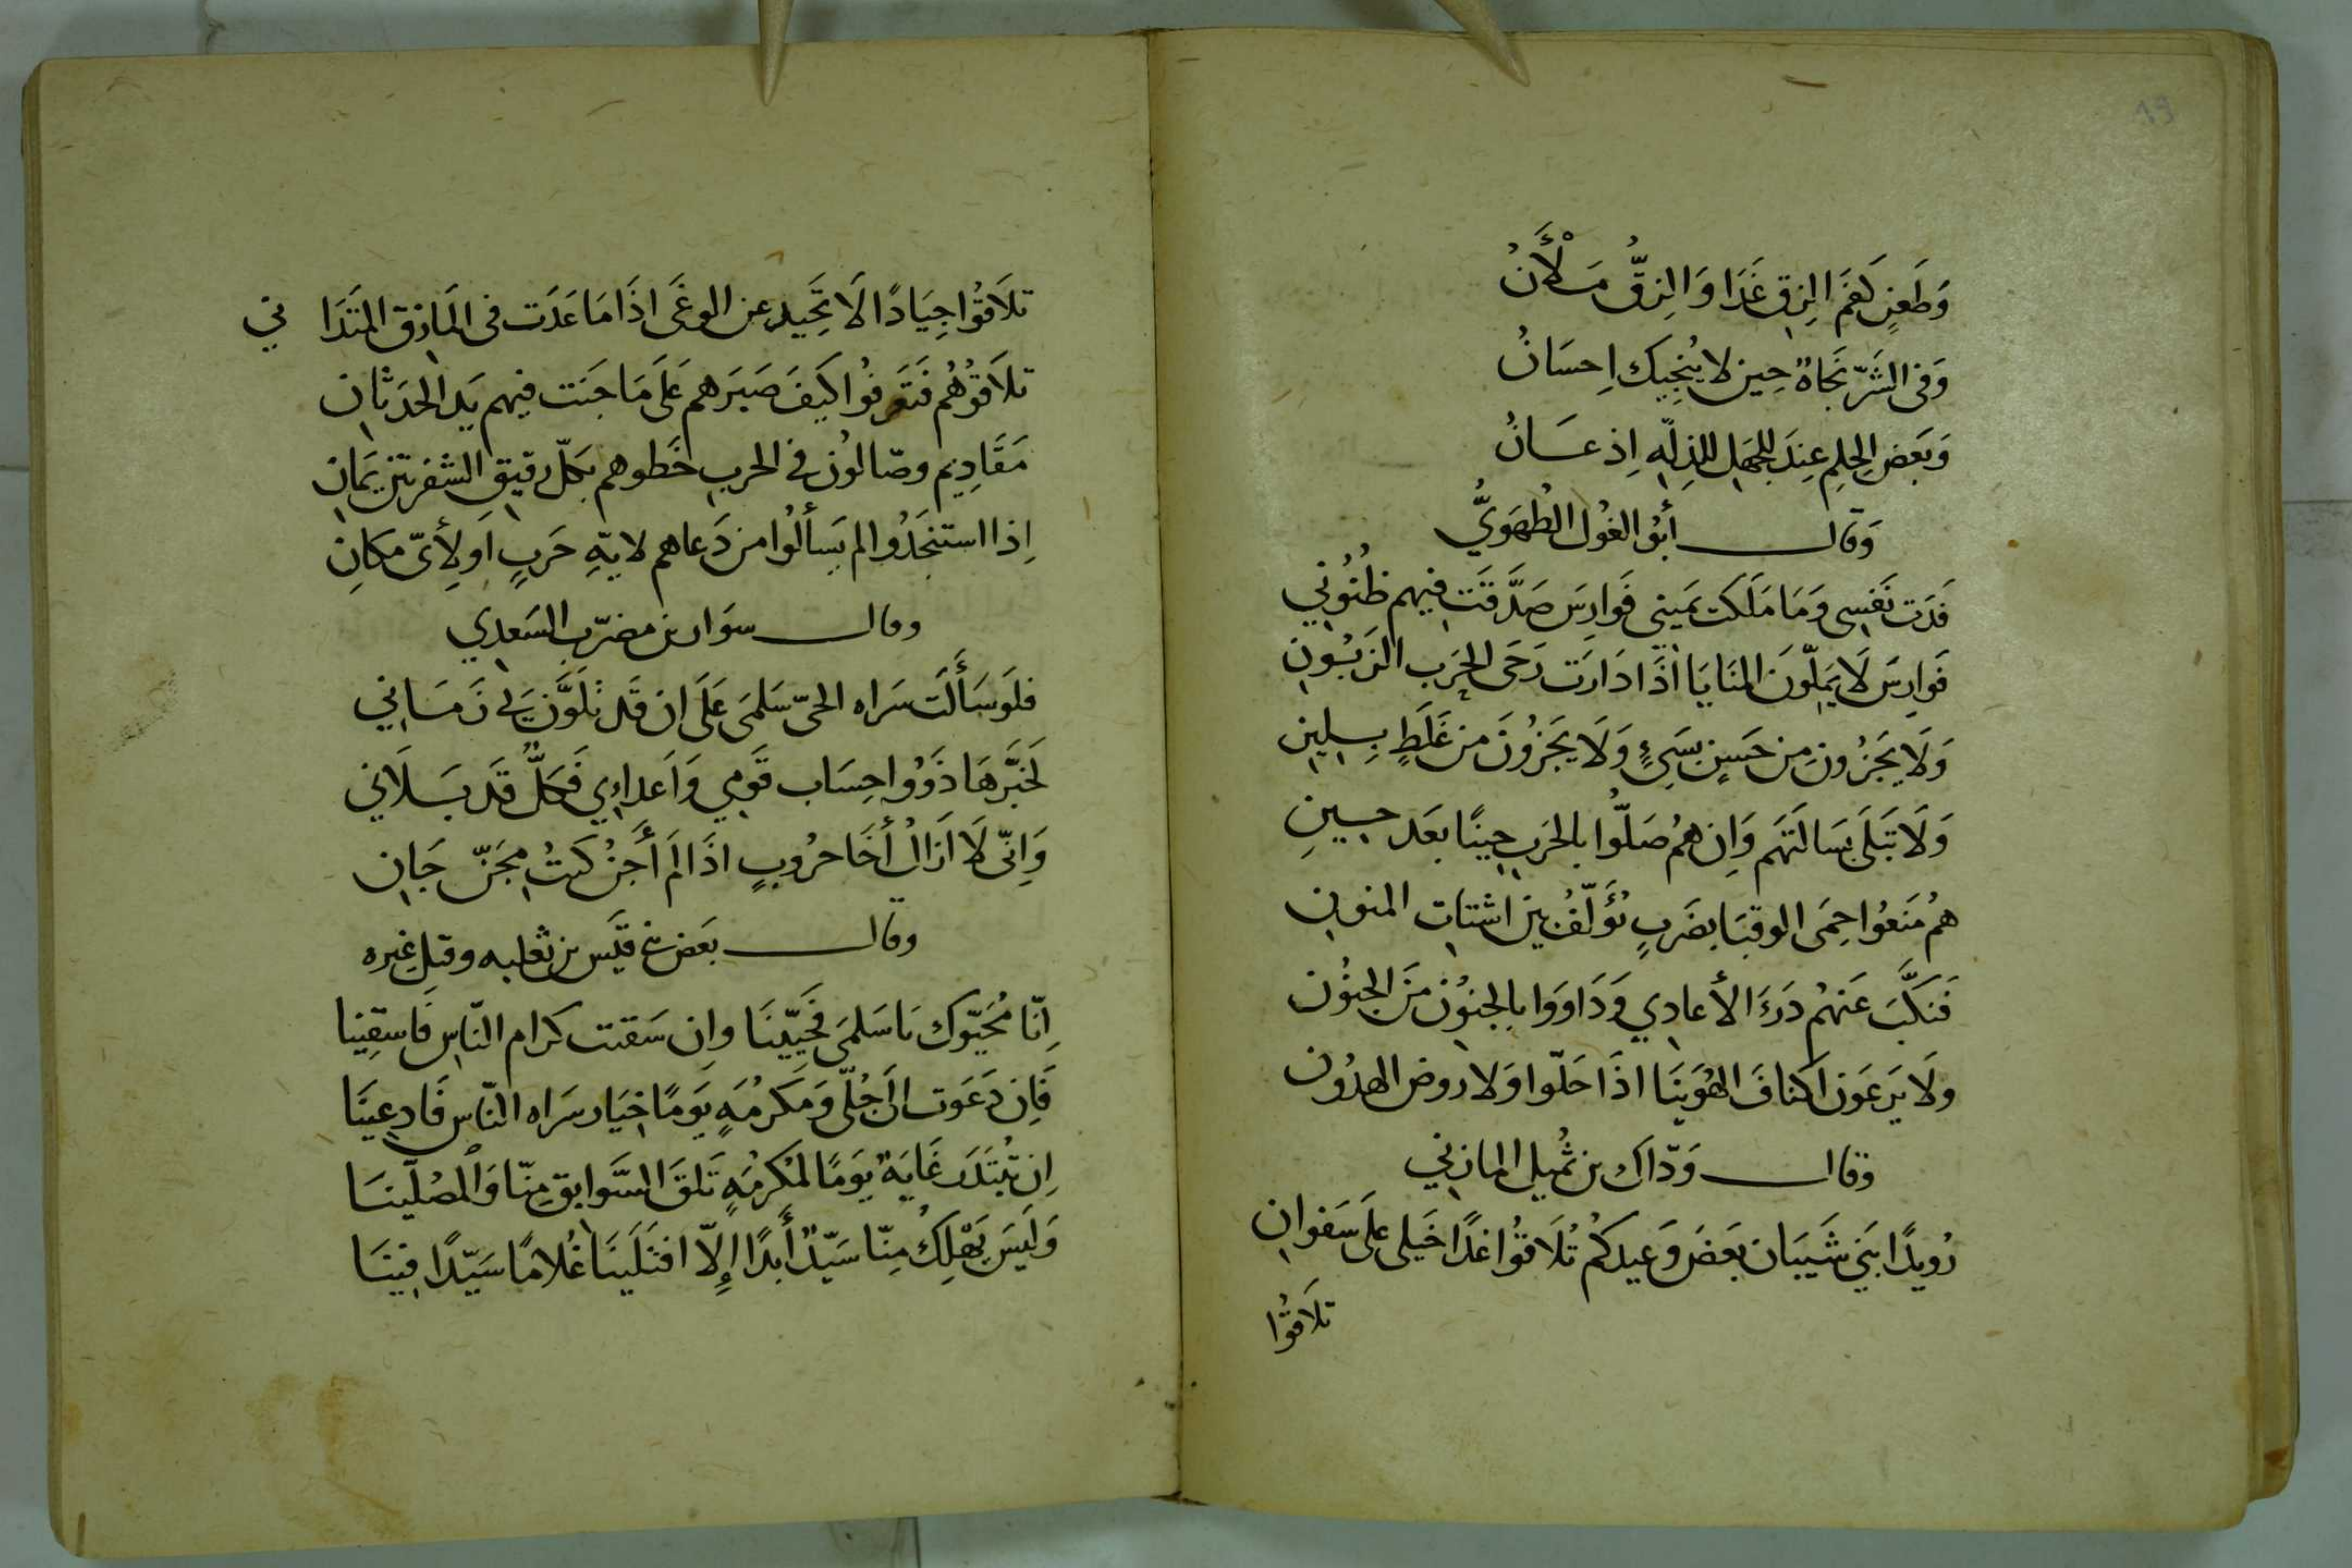 19
وَطَعنٍ كَفَمِ الزِقِ غَدَا وَالزِقُّ مَلْأَنُ
وَفى الشَرّ نَجَاةٌ حِين لا يُنجِيك اِحسَانُ
وَبَعض الحِلمِ عِندَ الجهل للذِلّهِ اِذعَانُ
وَقال أبُو الغُول الطُهَوِيُّ
فَدَت نَفسِى وَمَا مَلَكت يَمينِي فَوارِسَ صَدَّقَت فيهم ظنُوُنِي
فَوارِسَ لَا يَمِلّونَ المنَايَا اذَا دَارَت رَحَى الحَرب الزَبُونِ
وَلَا يَجزُونِ مِن حَسَنٍ بِسَيِئٍ وَلَا يَجزُونَ مِن غَلَطٍ بِلِينِ
وَلَا تَبلَى بَسَالَتهَم وَاِن هُمُ صَلُّوا بالحَربِ حِينًا بعَد حِينِ
هُمُ مَنَعُوا حِمَى الوقبَا بضَربٍ يُؤَلّفُ بين اشتاتِ المنونِ
فَنَكَّبَ عَنهُم دَرءَ الأعادِي وَدَاوَوا بالجنوُن مَنَ الجنوُن
ولَا يَرعَون اكنافَ الهُوَينَا اذَا حَلّوا وَلا روض الهدُون
وقال وَدّاك بن ثُميل المازنِي
رُويدًا بَني شَيبَان بعَضَ وَعيدكُم تُلَاقوُا غدًا خَيلى عَلَى سَفوانِ
تلَاقوُا
تلَاقوُا جِيَادًا لَا تَحِيد عن الوغَى اذَا مَا غَدَت فى المَازِق المتَدَانِي
تلاَقوُهُم فتَعَرفُوا كَيفَ صَبَرهم عَلَى مَا جَنَت فيهم يَد الحَدَثانِ
مَقَادِيم وصّالوُن فى الحربِ خَطوهم بكلّ رقيقِ الشفرتين يَمَانِ
اِذا استنجَدُوا لم يَسألوُا مَن دَعاهم لايّةِ حَربٍ اَو لِأىّ مكانِ
وقال سوَار بن مضرّب السَعدِي
فلَو سَأَلَت سَراه الحىّ سَلمَى عَلَى ان قَد تلَوَّنَ بي زَمَانِي
لَخبَّرهَا ذَوُوا حِسَاب قَومِي وَاَعداءِي فَكلٌّ قَد بَلَاني
وَاِنّى لَا اَزَالُ أَخَا حرُوبٍ اذَا لمَ أَجنُ كنتُ مِجَنّ جَانِ
وقال بعَض بني قَيَس بن ثعلبه وقيل غيره
اِنّا مُحَيّوك يَا سَلمَى فَحَيّينَا واِن سَقيت كرام النّاس فَاسقِينا
فَاِن دَعَوت الىَ جُلّى وَمَكرمُهٍ يَومًا خيَار سَراه النّاس فَادعِينَا
اِن تُبتَدَر غَايَةٌ يَومًا لمَكرمُهٍ تَلقَ السَّوابِق مِنّا وَالمصُلّينَا
وَلَيسَ يَهْلِكُ مِنّا سَيّدٌ أَبدًا إِلّا افتَلَينَا غُلامًا سَيّدًا فِينَا